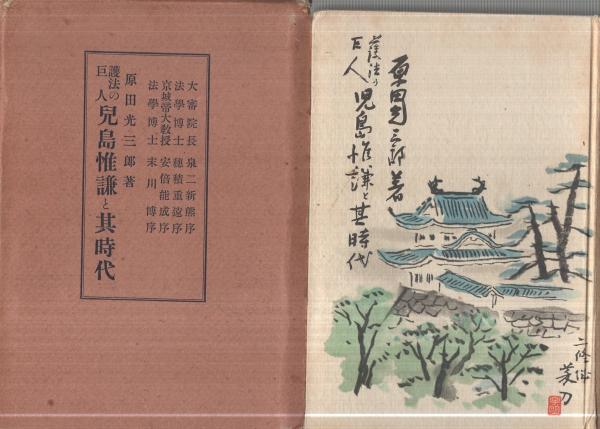 大審院長 泉二新熊序
法學博士 穗積重遠序
京城帝大教授 安倍能成序
法學博士 末川博序
原田光三郎著
護法の巨人 兒島惟謙と其時代
原田光三郎著
護法の
巨人 児島惟謙と其時代